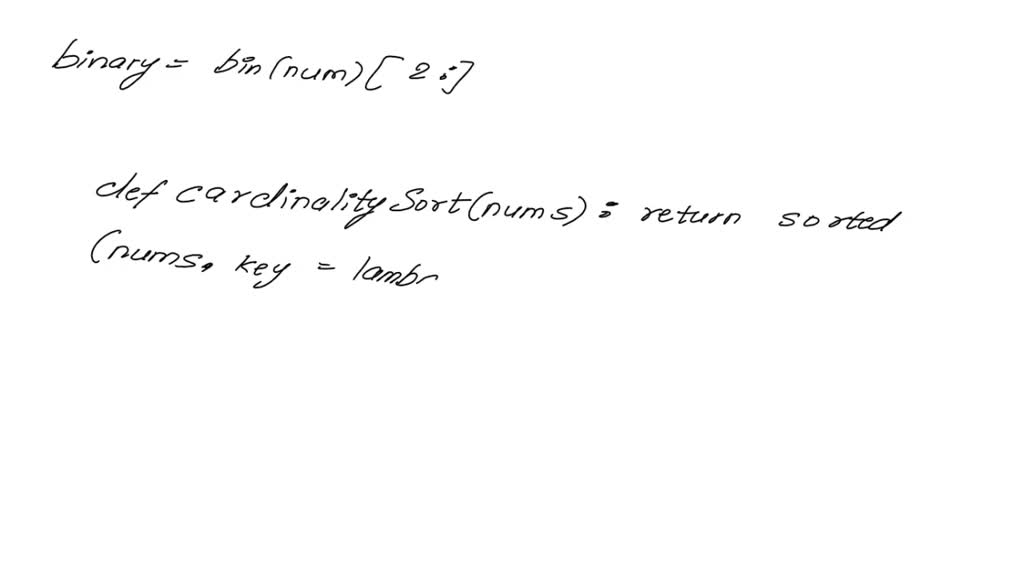 binary = bin(num)[2:]
def cardinalitySort(nums): return sorted
(nums, key = lamb